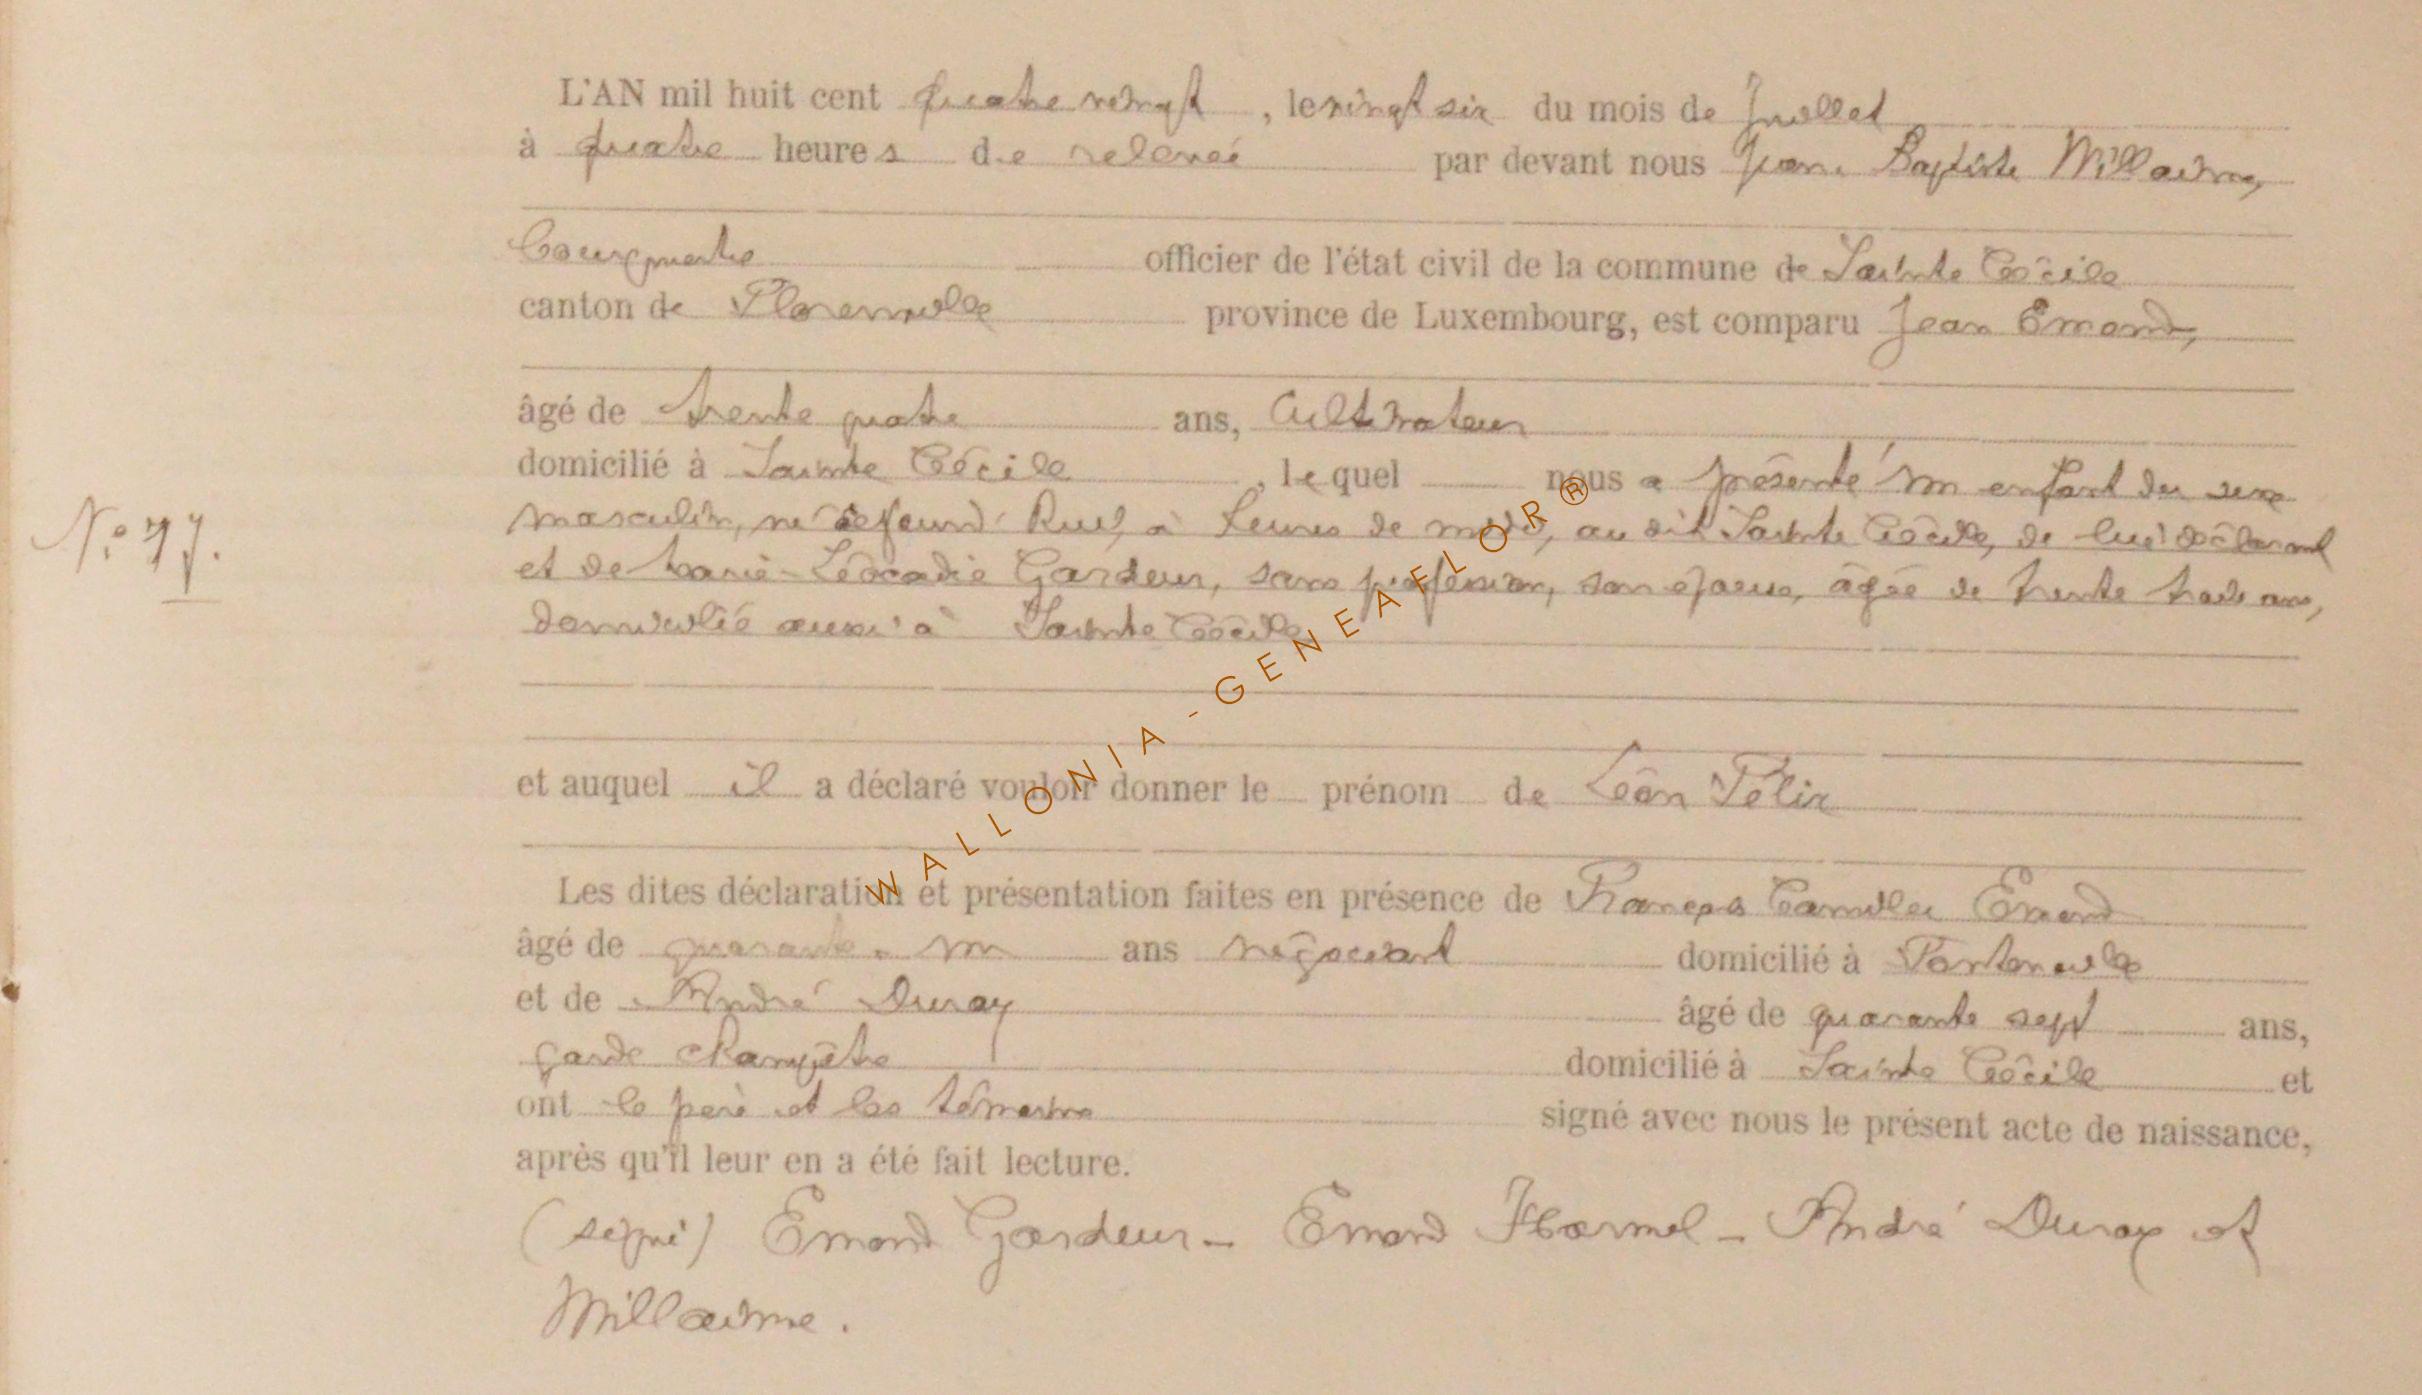 L'AN mil huit cent quatre vingt, le vingt six du mois de Juillet
à quatre heures de relevée par devant nous Jean Baptiste Millaime,
Bourgmestre officier de l'état civil de la commune de Sainte Cécile
canton de Florenville province de Luxembourg, est comparu Jean Emond,
âgé de trente quatre ans, Cultivateur
domicilié à Sainte Cécile, lequel nous a présenté un enfant du sexe
N° 17. masculin, né à heures de midi, au dit Sainte Cécile, de lui déclarant
et de Marie-Léocadie Gardeur, sans profession, son épouse, âgée de trente trois ans,
domiciliée aussi à Sainte Cécile
et auquel il a déclaré vouloir donner le prénom de Léon Félix
Les dites déclaration et présentation faites en présence de François Camille Emond
âgé de quarante-un ans négociant domicilié à Fontenoille
et de André Duray âgé de quarante sept ans,
garde champêtre domicilié à Sainte Cécile et
ont le père et les témoins signé avec nous le présent acte de naissance,
après qu'il leur en a été fait lecture.
(signé) Emond Gardeur - Emond Harmel - André Duray et
Millaime.
WALLONIA-GENEAFLOR®